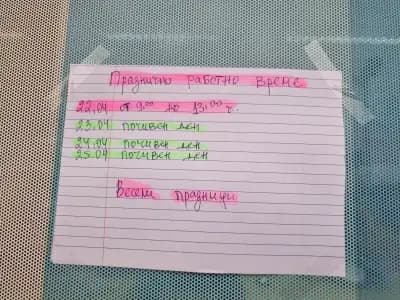 Празнично работно време
22.04 от 9.00 до 13.00 г.
23.04 почивен ден
24.04 почивен ден
25.04 почивен ден
Весели празници